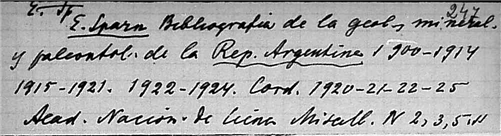 247
E. Sparn Bibliografia de la geol., mineral.
y paleontol. de la Rep. Argentina 1900-1914
1915-1921. 1922-1924. Cord. 1920-21-22-25
Acad. Nacion. de Cienc. Miscell. N 2, 3, 5, 11